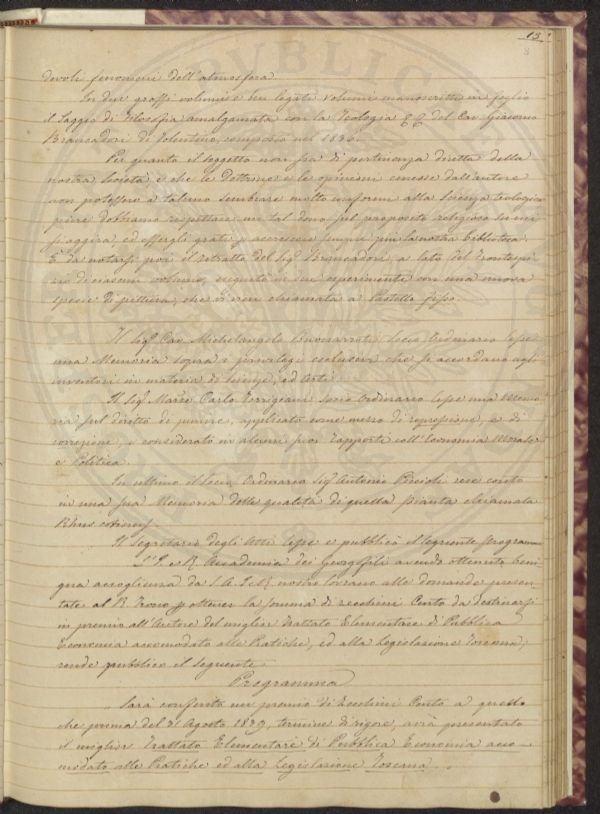 13
devoli fenomeni dell'atmosfera
In due grossi volumi e ben legati volumi manoscritti in foglio
il Saggio di Filosofia amalgamata con la Teologia del Cav Giacomo
Brancadori di Tolentino, composto nel 1836.
Per quanto il soggetto non sia di pertinenza diretta della
nostra Società, e che le Dottrine e le opinioni emesse dall'autore
non potessero a taluno sembrare molto uniformi alla Scienza teologica
pure dobbiamo rispettare un tal dono sul proposito religioso in cui
si aggira, ed essergli grati accrescere sempre più la nostra biblioteca.
È da notarsi poi il ritratto del Sig. Brancadori, a lato del frontespi-
zio di ciascun volume, eseguito in un esperimento con una nuova
specie di pittura, che vien chiamata a Pastello fisso.
Il Sig. Cav. Michelangelo Buonarroti Socio Ordinario lesse
una Memoria sopra i privilegi esclusivi che si accordano agli
inventori in materia di Scienze, ed Arti.
Il Sig. March. Carlo Torrigiani Socio Ordinario lesse una Memo-
ria sul diritto di punire, applicato come mezzo di repressione, e di
correzione, e considerato in alcuni suoi rapporti coll'Economia Morale
e Politica.
In ultimo il Socio Ordinario Sig. Antonio rese conto
in una sua Memoria delle qualità di quella pianta chiamata
Rhus
Il Segretario degli Atti lesse e pubblicò il seguente programma
L'I. e R. Accademia dei Georgofili avendo ottenuta beni-
gna accoglienza da S. A. I. e R. nostro Sovrano alle domande presen-
tate al R. Trono ottener la somma di zecchini Cento da destinarsi
in premio all'Autore del miglior Trattato Elementare di Pubblica
Economia accomodato alle Pratiche, ed alla Legislazione Toscana,
rende pubblico il seguente
Programma
"Sarà conferito un premio di Zecchini Cento a quello
che prima del 31 Agosto 1839, termine di rigore, avrà presentato
il miglior Trattato Elementare di Pubblica Economia acco-
modato alle Pratiche ed alla Legislazione Toscana".